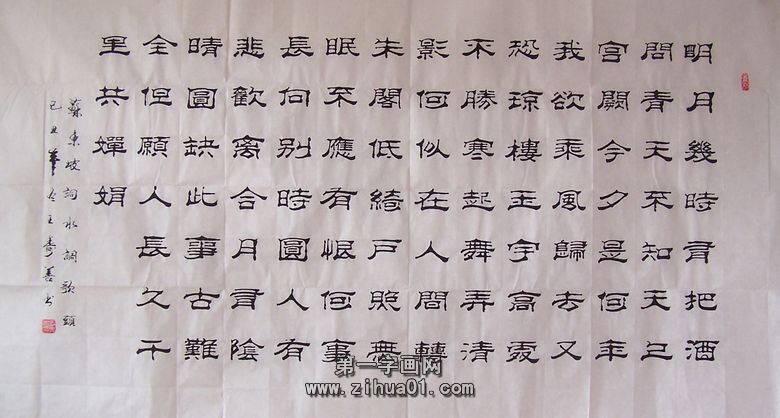 明月幾時有把酒
問青天不知天上
宮闕今夕是何年
我欲乘風歸去又
恐琼樓玉宇高處
不勝寒起舞弄清
影何似在人間轉
朱閣低綺戶照無
眠不應有恨何事
長向别時圓人有
悲歡離合月有陰
晴圓缺此事古難
全但願人長久千
里共嬋娟
蘇東坡詞水調歌頭
己丑 王壽善书
第一字画网
www.zihua01.com